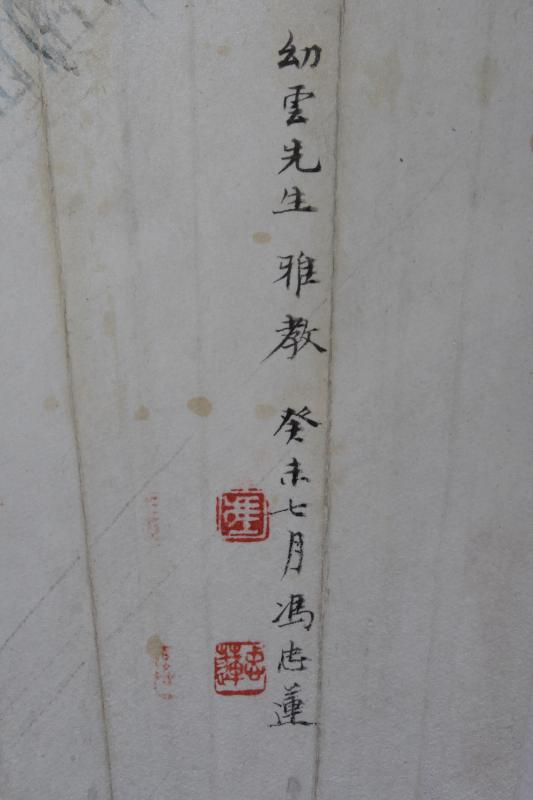 幼雲先生 雅教 癸未七月馮忠蓮
馮
忠蓮